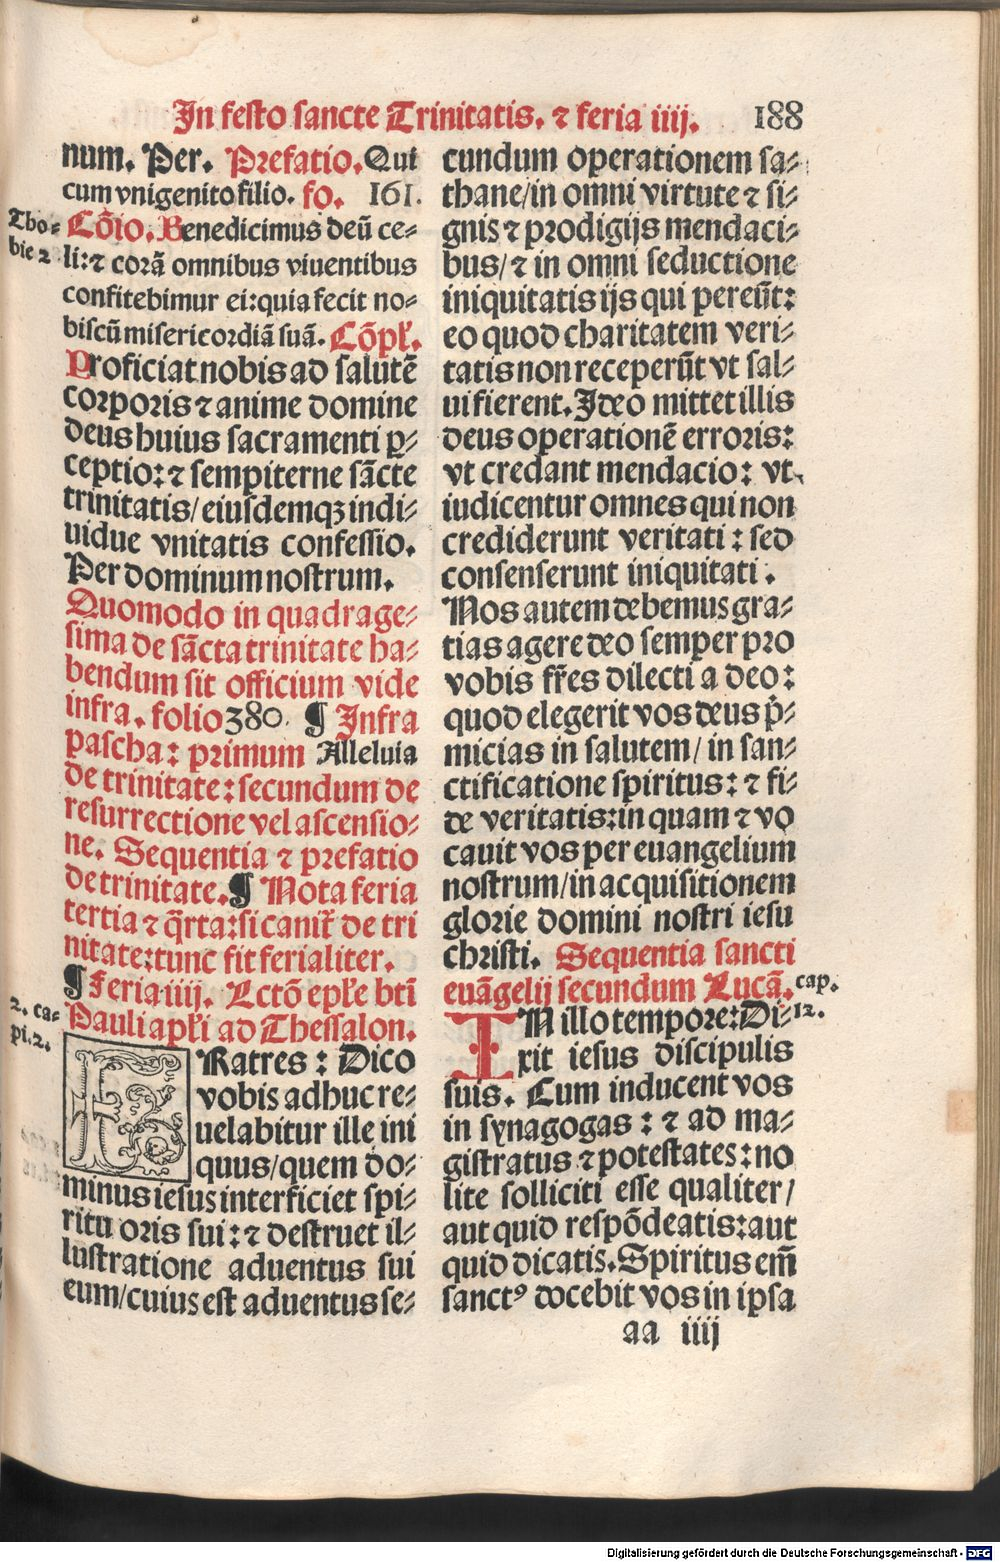 In festo sancte Trinitatis. ⁊ feria iiij. 188
num. Per. Prefatio. Qui
cum vnigenito filio. fo. 161.
Tho⸗
bie 2
Cōio. Benedicimus deū ce⸗
li:⁊ corā omnibus viuentibus
confitebimur ei:quia fecit no⸗
biscū misericordiā suā. Cōpł.
Proficiat nobis ad salutē
corporis ⁊ anime domine
deus huius sacramenti ꝑ⸗
ceptio:⁊ sempiterne sācte
trinitatis/eiusdemqꝫ indi⸗
uidue vnitatis confessio.
Per dominum nostrum.
Quomodo in quadrage⸗
sima de sācta trinitate ha⸗
bendum sit officium vide
infra. folio 380. ¶ Infra
pascha: primum Alleluia
de trinitate: secundum de
resurrectione vel ascensio⸗
ne. Sequentia ⁊ prefatio
de trinitate. ¶ Nota feria
tertia ⁊ q̄rta:si canit̄ de tri
nitate:tunc fit ferialiter.
¶ Feria iiij. Lctō epłe bti
Pauli apłi ad Thessalon.
2. ca⸗
pi.2.
FRatres: Dico
vobis adhuc re⸗
uelabitur ille ini
quus/quem do⸗
minus iesus interficiet spi⸗
ritu oris sui:⁊ destruet il⸗
lustratione aduentus sui
eum/cuius est aduentus se⸗
cundum operationem sa⸗
thane/in omni virtute ⁊ si⸗
gnis ⁊ prodigijs mendaci⸗
bus/⁊ in omni seductione
iniquitatis ijs qui pereūt:
eo quod charitatem veri⸗
tatis non receperūt vt sal⸗
ui fierent. Ideo mittet illis
deus operationē erroris:
vt credant mendacio: vt
iudicentur omnes qui non
crediderunt veritati: sed
consenserunt iniquitati.
Nos autem debemus gra⸗
tias agere deo semper pro
vobis fr̄es dilecti a deo:
quod elegerit vos deus p̄⸗
micias in salutem/in san⸗
ctificatione spiritus: ⁊ fi⸗
de veritatis:in quam ⁊ vo
cauit vos per euangelium
nostrum/in acquisitionem
glorie domini nostri iesu
christi. Sequentia sancti
euāgelij secundum Lucā.
cap.
12.
IN illo tempore: Di⸗
xit iesus discipulis
suis. Cum inducent vos
in synagogas: ⁊ ad ma⸗
gistratus ⁊ potestates: no
lite solliciti esse qualiter/
aut quid respōdeatis:aut
quid dicatis. Spiritus em̄
sanctꝰ docebit vos in ipsa
aa iiij
Digitalisierung gefördert durch die Deutsche Forschungsgemeinschaft - DFG